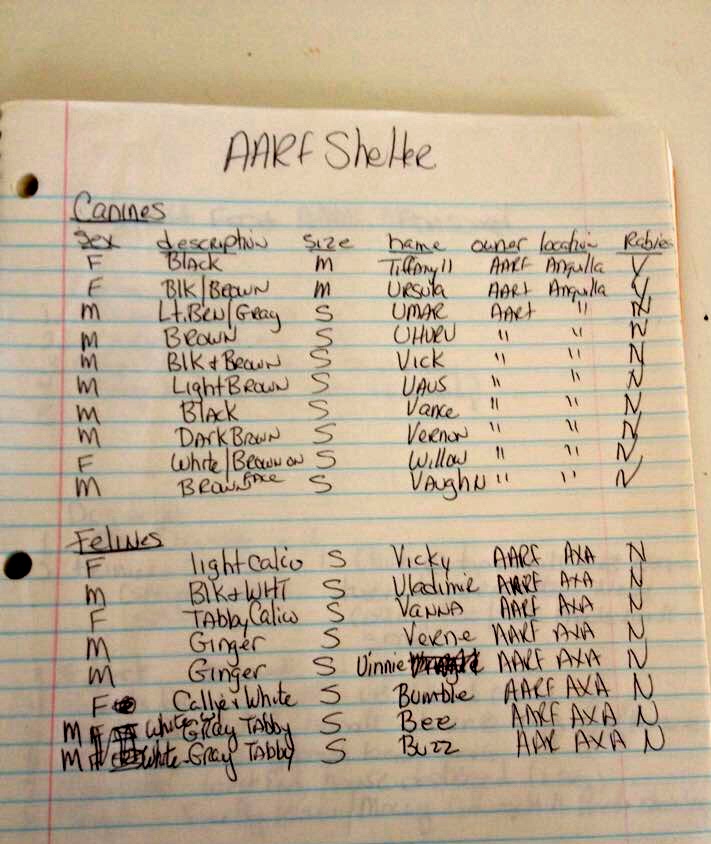 AARF Shelter
Canines
Sex description Size name owner location Rabies
F Black M Tiffany 11 AARF Anguilla Y
F Blk/Brown M Ursula AARF Anguilla Y
M Lt. Brn/Gray S UMAR AARF " N
M Brown S UHURU " " N
M Blk & Brown S Vick " " N
M Light Brown S " " N
M Black S Vance " " N
M Dark Brown S Vernon " " N
F White/Brown on face S Willow " " N
M Brown S Vaughn " " N
Felines
F light calico S Vicky AARF AXA N
M Blk & WHT S Vladimie AARF AXA N
F Tabby Calico S VANNA AARF AXA N
M Ginger S Verne AARF AXA N
M Ginger S Vinnie AARF AXA N
F & White S Bumble AARF AXA N
M White Gray Tabby S Bee AARF AXA N
M White Gray Tabby S Buzz AAR AXA N